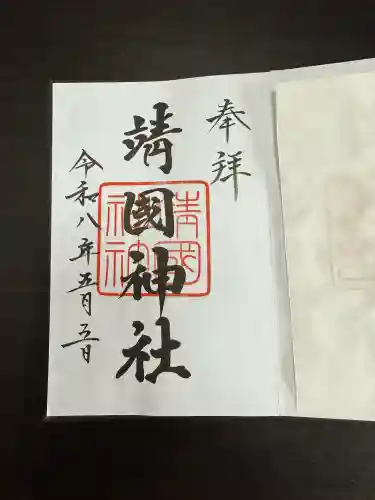 奉拝
靖國神社
靖國神社
令和八年五月五日